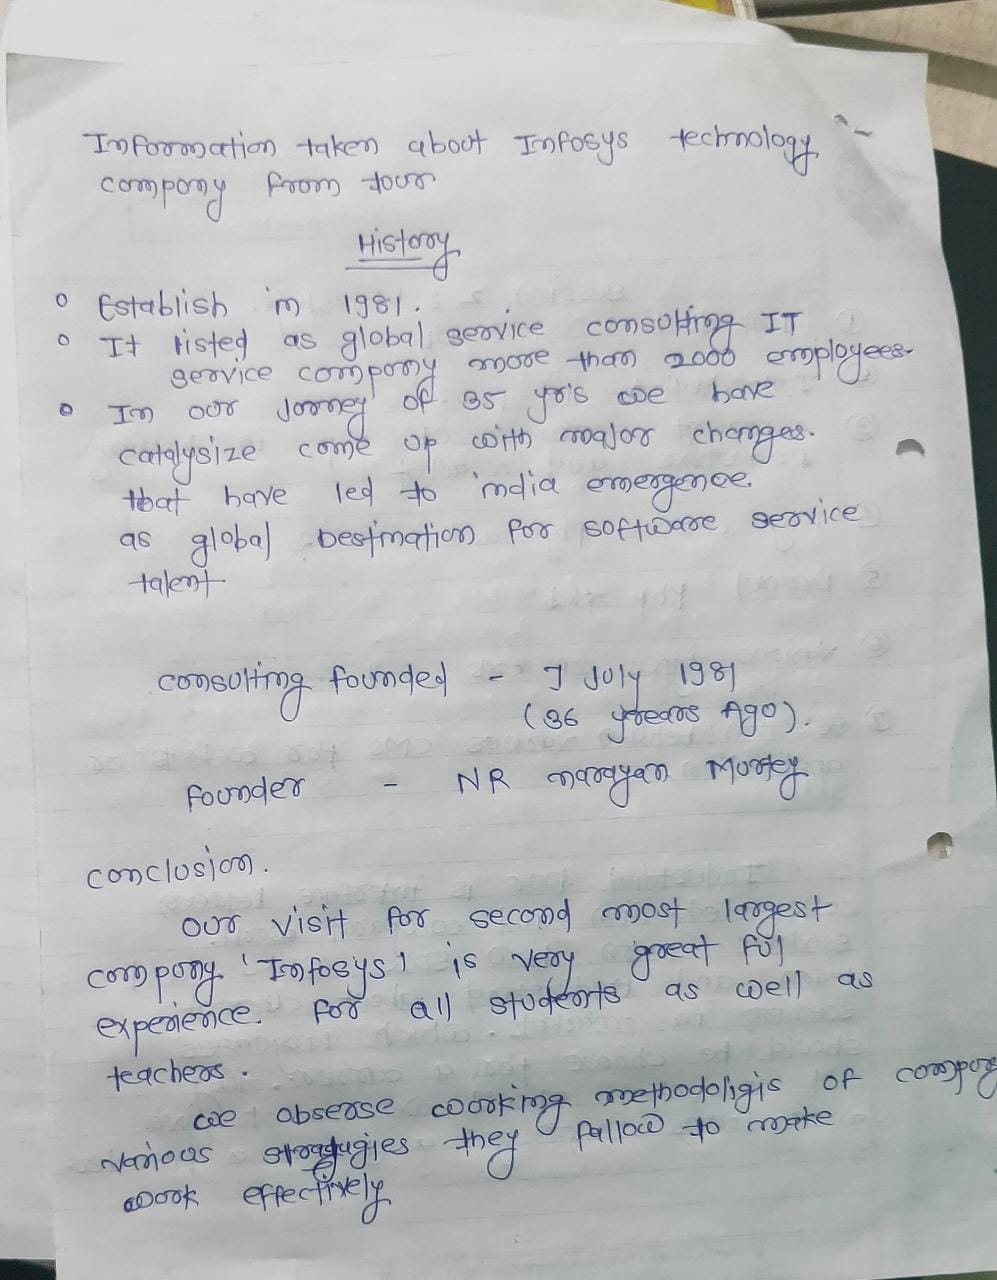 Information taken about Infosys technology
company from tour
History
o Establish in 1981.
o It listed as global service consulting IT
service company more than 2000 employees.
o In our Jorney of 35 yr's we have
catalysize come up with major changes.
that have led to india emergence.
as global Destination for software service
talent
consulting founded - 7 July 1981
(36 years Ago).
founder - NR narayan Murtey
conclusion.
our visit for second most largest
company 'Infosys' is very great ful
experience. for all students as well as
teachers.
we observe working methodoligis of company
various they follow to make
work effectively